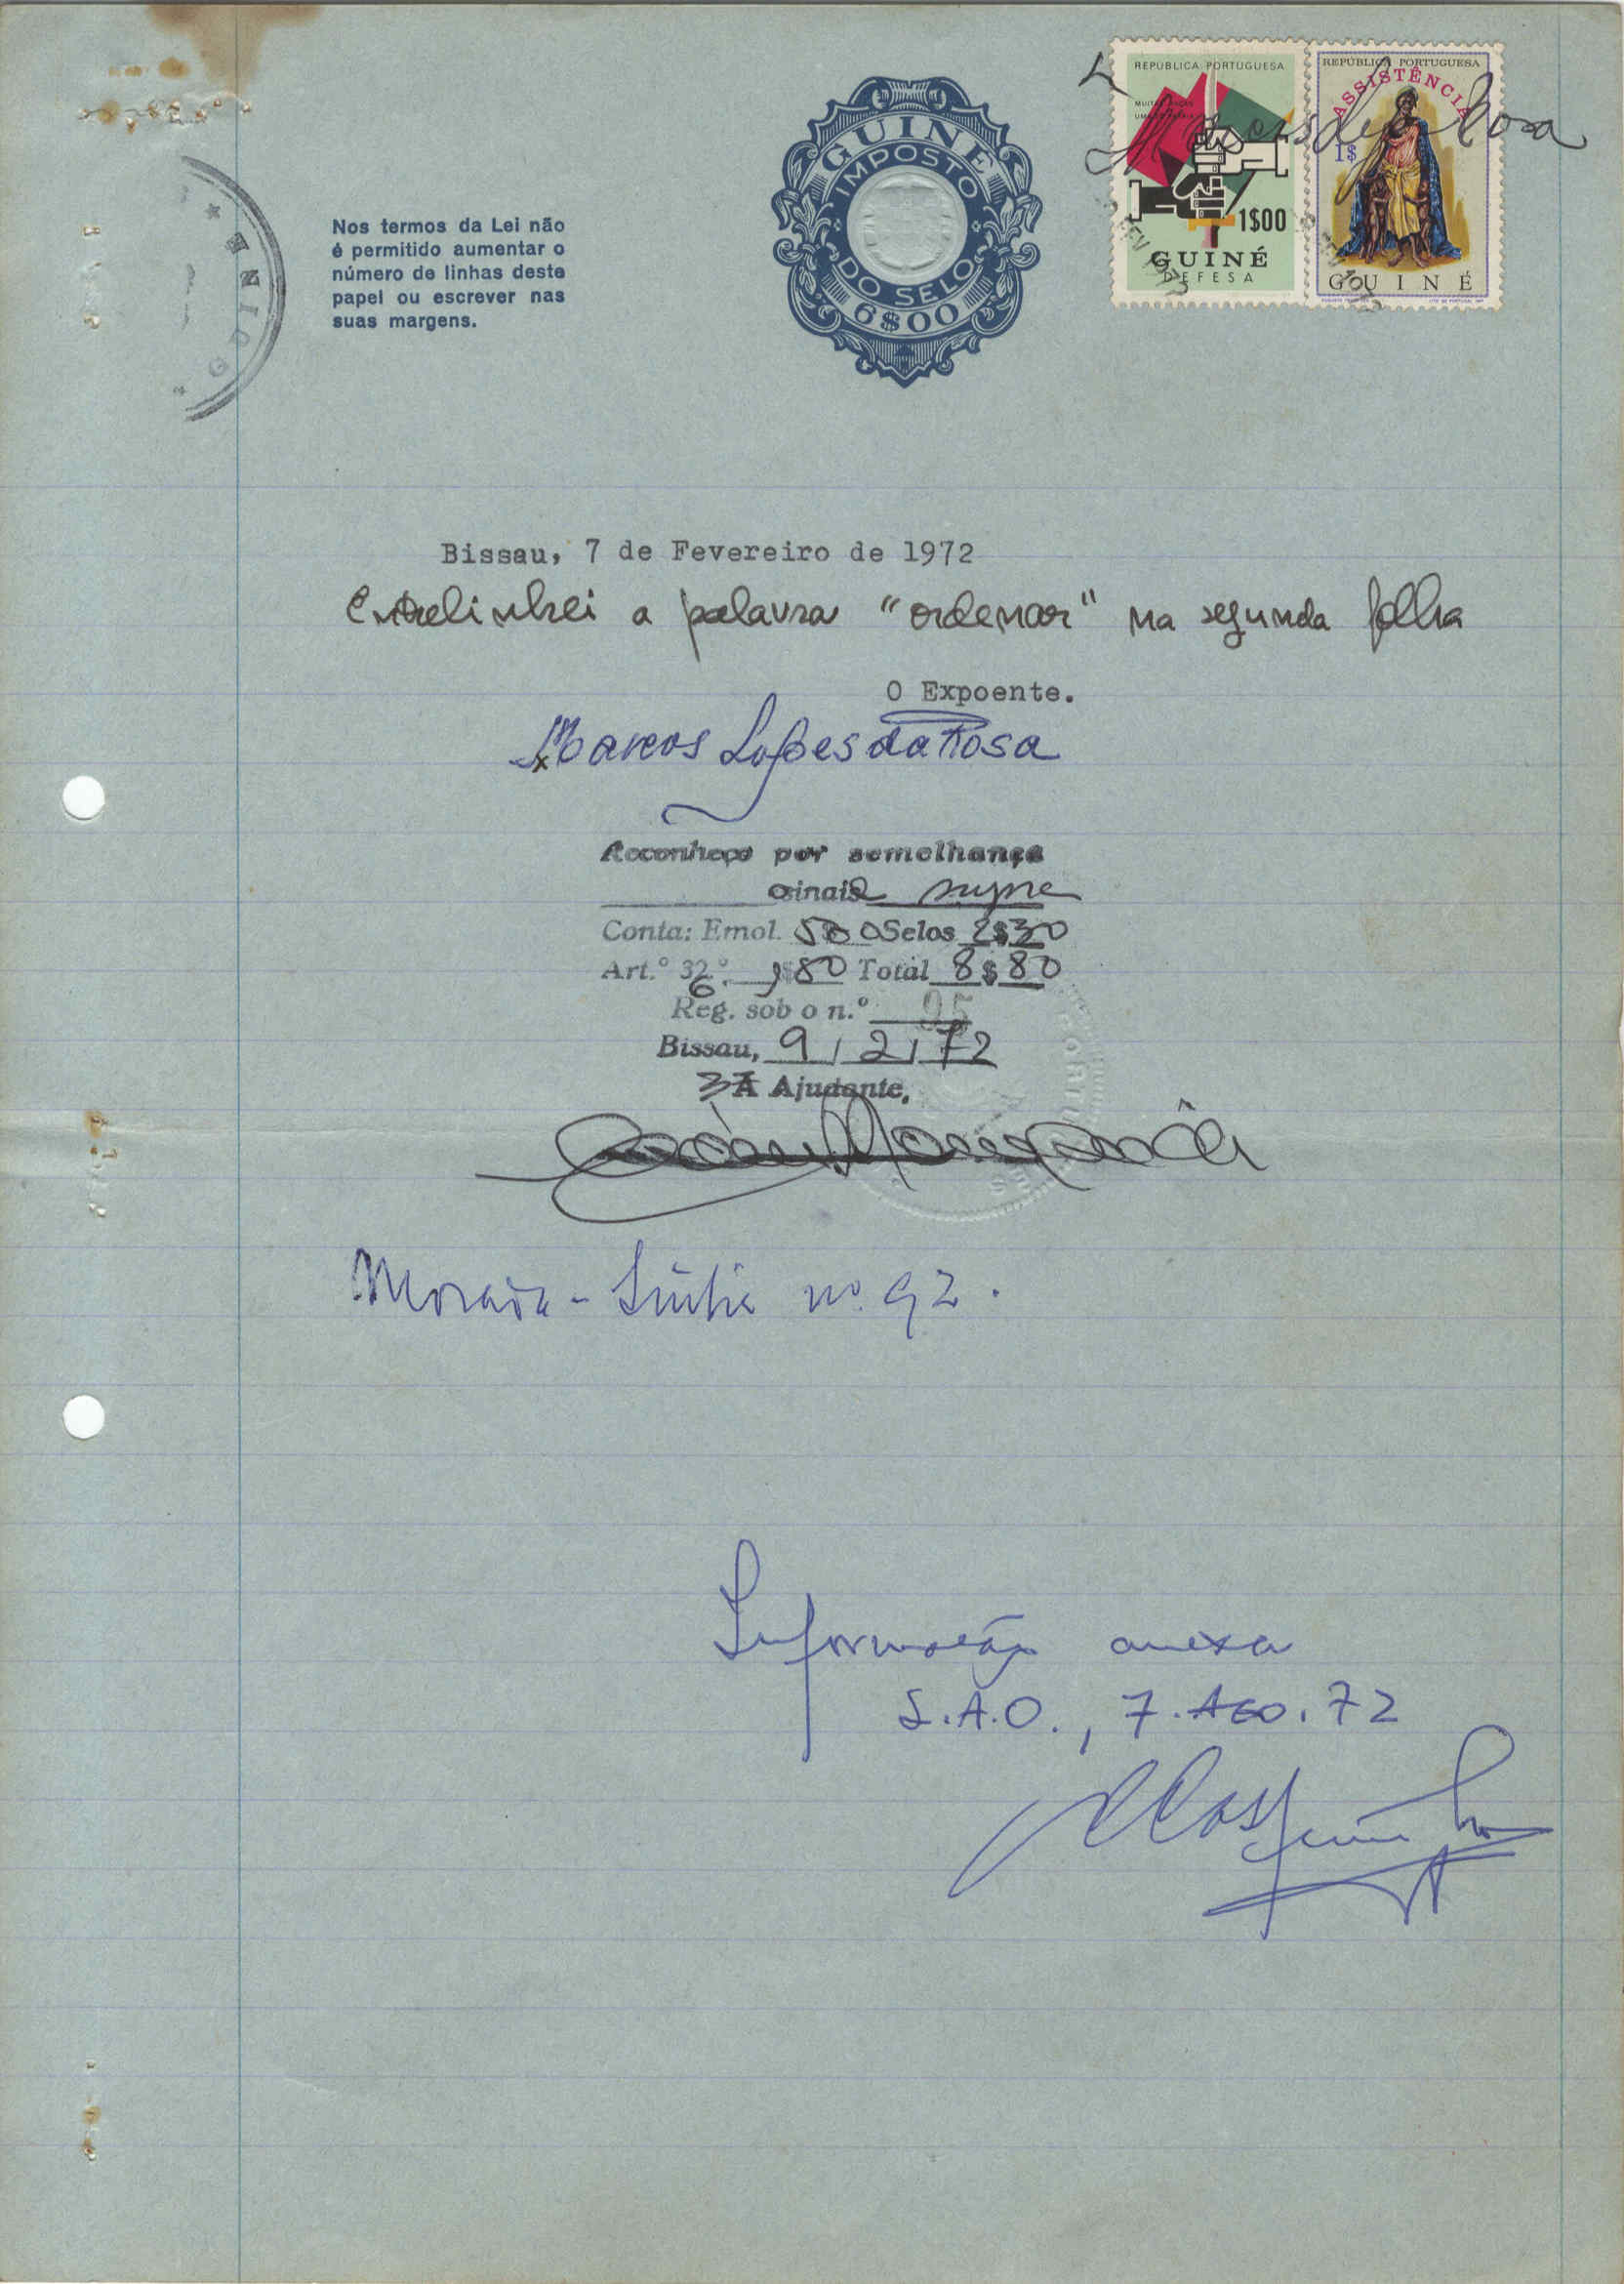 REPÚBLICA PORTUGUESA
MUITAS RAÇAS
UMA
1$00
GUINÉ
DEFESA
REPÚBLICA PORTUGUESA
ASSISTÊNCIA
1$
GUINÉ
GUINÉ
IMPOSTO
DO SELO
6$00
Nos termos da Lei não
é permitido aumentar o
número de linhas deste
papel ou escrever nas
suas margens.
Bissau, 7 de Fevereiro de 1972
Entrelinhei a palavra "ordenar" na segunda folha
O Expoente.
Marcos Lopes da Rosa
Reconheço por semelhança
o sinal supra
Conta: Emol. 5$00 Selos 2$30
Art.º 36º. 1$80 Total 8$80
Reg. sob o n.º 95
Bissau, 9/2/72
3º Ajudante,
Morada - nº 92.
Informação anexa
S.A.O., 7.AGO.72